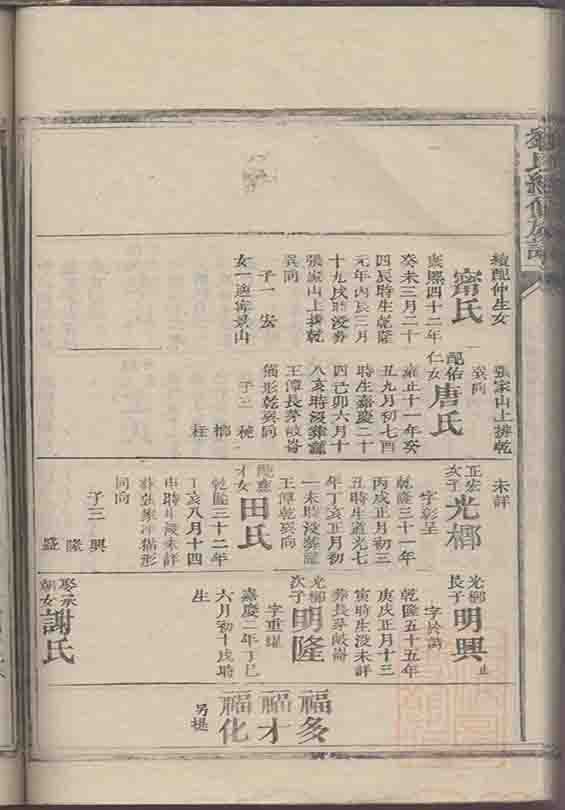 氏續修族譜
續配仲生女
甯氏
康熙四十二年
癸未三月二十
四辰時生乾隆
元年丙辰三月
十九戌時沒葬
張家山上排乾
巽向
子一 安
女一適甯景山
張家山上排乾
巽向
配佑
仁女
唐氏
雍正十一年癸
丑九月初七酉
時生嘉慶二十
四己卯六月十
八亥時沒葬
王潭長茅
猫形乾巽向
子三
柱
未詳
次子
光榔
字彰呈
乾隆三十一年
丙戌正月初三
丑時生道光七
年丁亥正月初
一未時沒葬
王潭乾巽向
才女
田氏
乾隆三十二年
丁亥八月十四
申時生沒未詳
猫形
同向
子三 興
隆
盛
光榔
長子
明興
止
乾隆五十五年
庚戌正月十三
寅時生沒未詳
葬長茅
光榔
次子
明隆
字重
嘉慶二年丁巳
六月初十戌時
生
娶承
朝女
謝氏
福多
福才
福化
另提